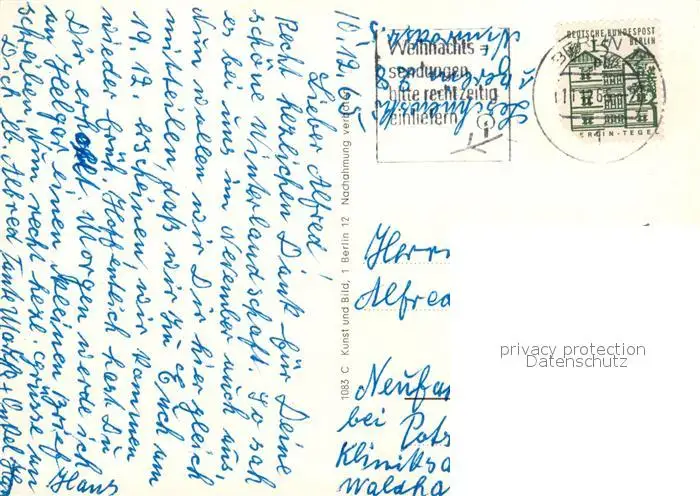 10.12.65
Lieber Alfred!
Recht herzlichen Dank für Deine
schöne Winterlandschaft. So sah
es bei uns im November auch aus.
Nun wollen wir Dir hier gleich
mitteilen, daß wir zu Euch am
19.12 erscheinen wir kommen
wieder früh. Hoffentlich hast Du
Dir erholt. Morgen werde ich
an Helga einen kleinen Brief
schreiben. Nun recht herzl. Grüsse an
Dich lb Alfred Tante Martha + Onkel
Hans
1083 C Kunst und Bild, 1 Berlin 12 Nachahmung verboten
Weihnachts-
sendungen
bitte rechtzeitig
einliefern
DEUTSCHE BUNDESPOST
BERLIN
BERLIN-TEGEL
Herrn
Alfred
Neufa
bei Pots
Kliniksa
Waldha
privacy protection
Datenschutz